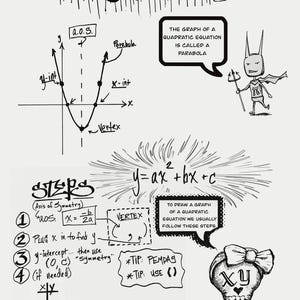 a.o.s.
Parabola
y-int
x-int
x
Vortex
THE GRAPH OF A
QUADRATIC EQUATION
IS CALLED A
PARABOLA
y=ax²+bx+c
STEPS
(Axis of Symmetry)
① "AOS" x = -b/2a
VERTEX
( , )
② PLUG x in to find y
③ y-intercept then use
(0, c) "symmetry"
④ (if needed)
x y
*TIP: PEMDAS
*TIP: USE ( )
TO DRAW A GRAPH
OF A QUADRATIC
EQUATION WE USUALLY
FOLLOW THESE STEPS
X Y